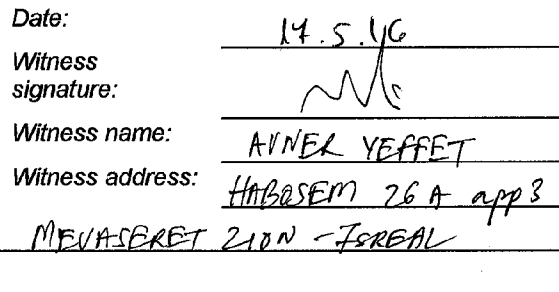 Date: 17.5.16
Witness
signature:
Witness name: AVNER YEFFET
Witness address: HABOSEM 26 A app 3
MEVASERET ZION - ISREAL